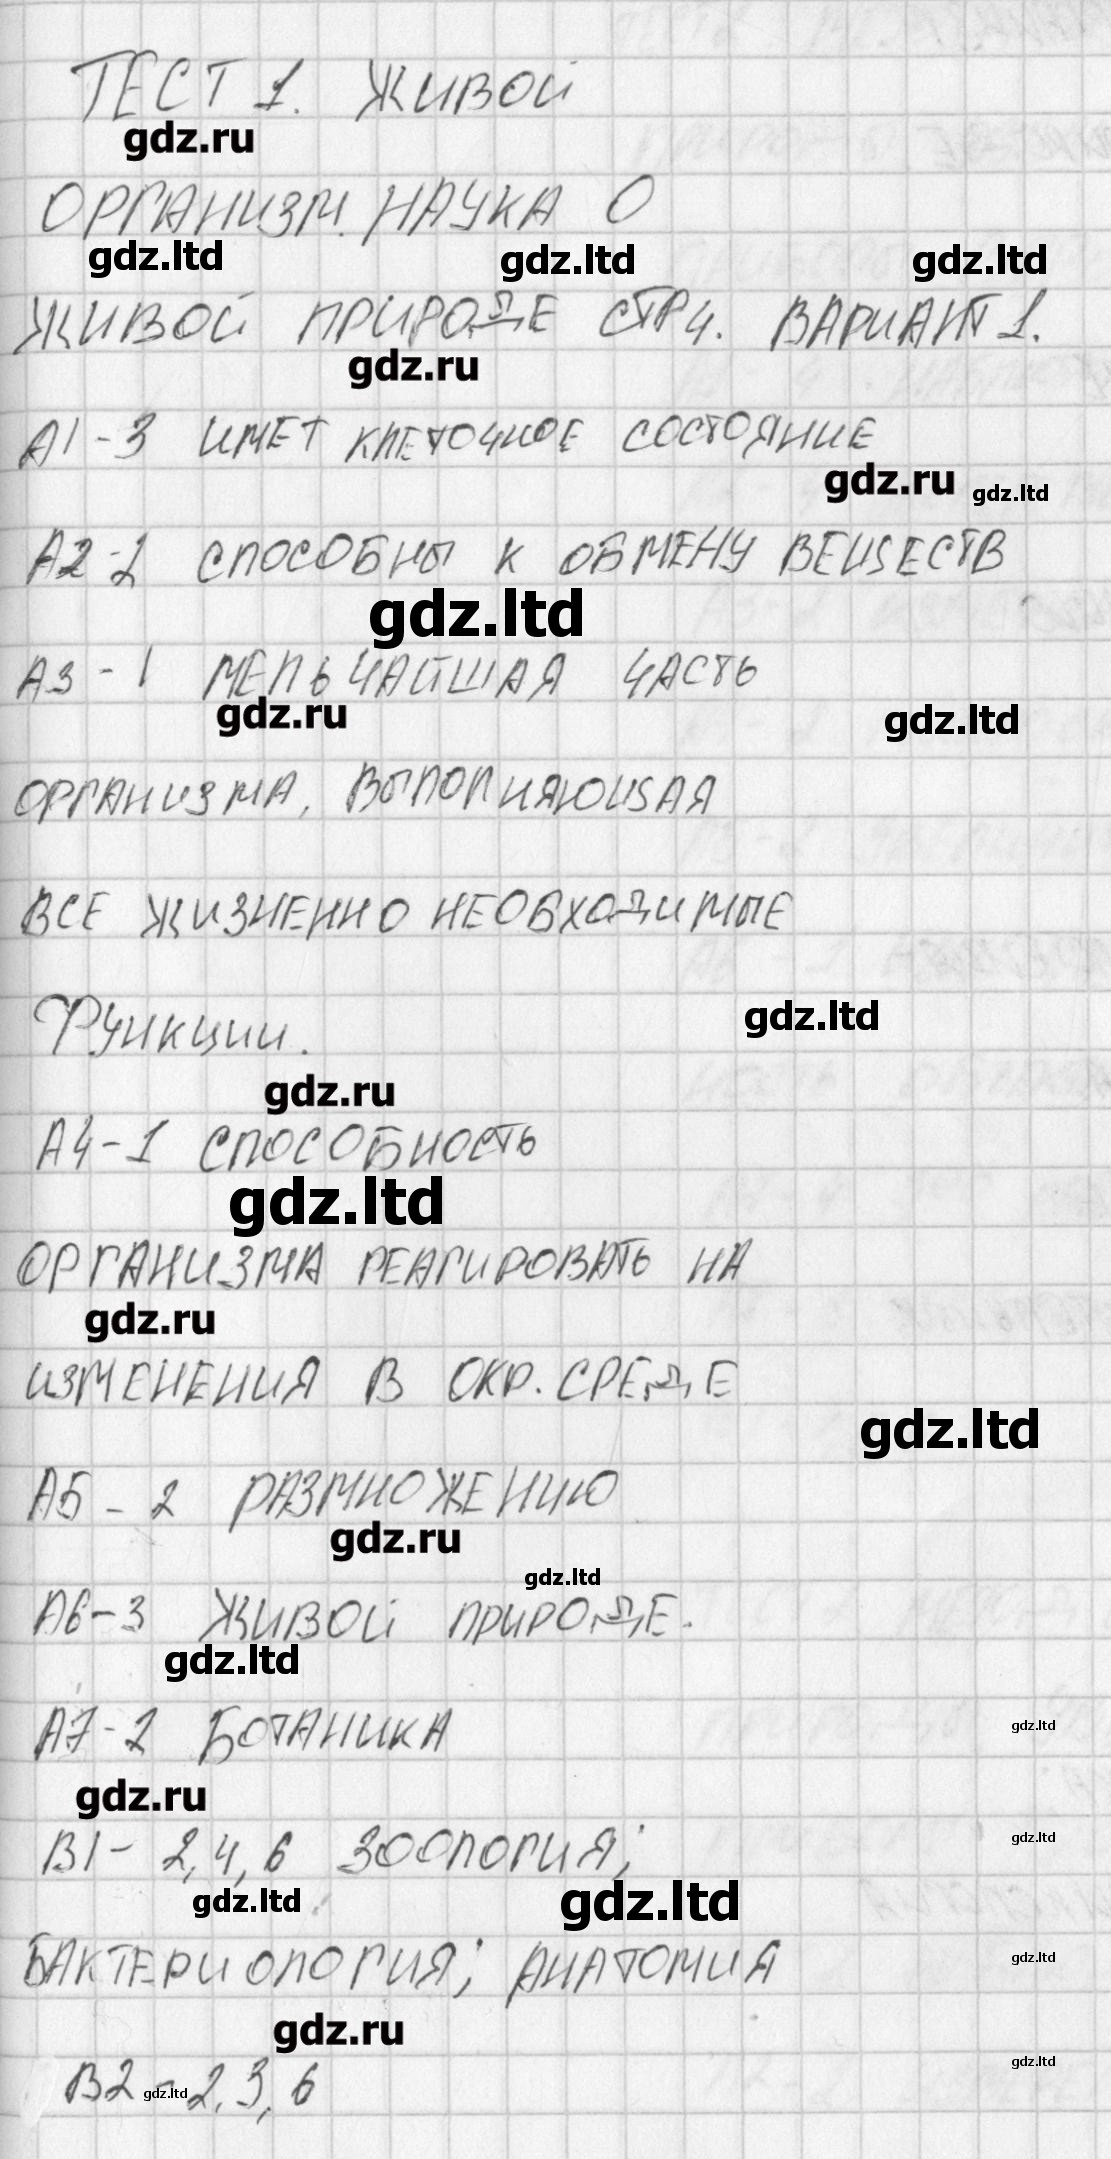 ТЕСТ 1. ЖИВОЙ
gdz.ru
ОРГАНИЗМ. НАУКА О
gdz.ltd gdz.ltd gdz.ltd
ЖИВОЙ ПРИРОДЕ СТР4. ВАРИАНТ 1.
gdz.ru
А1-3 ИМЕТ КЛЕТОЧНОЕ СОСТОЯНИЕ
gdz.ru gdz.ltd
А2-2 СПОСОБНЫ К ОБМЕНУ ВЕЩЕСТВ
gdz.ltd
А3-1 МЕЛЬЧАЙШАЯ ЧАСТЬ
gdz.ru gdz.ltd
ОРГАНИЗМА, ВЫПОЛНЯЮЩАЯ
ВСЕ ЖИЗНЕННО НЕОБХОДИМЫЕ
ФУНКЦИИ.
gdz.ltd
gdz.ru
А4-1 СПОСОБНОСТЬ
gdz.ltd
ОРГАНИЗМА РЕАГИРОВАТЬ НА
gdz.ru
ИЗМЕНЕНИЯ В ОКР. СРЕДЕ
gdz.ltd
А5-2 РАЗМНОЖЕНИЮ
gdz.ru
gdz.ltd
А6-3 ЖИВОЙ ПРИРОДЕ.
gdz.ltd
А7-2 БОТАНИКА
gdz.ltd
gdz.ru
В1- 2, 4, 6 ЗООЛОГИЯ;
gdz.ltd
gdz.ltd gdz.ltd
БАКТЕРИОЛОГИЯ; АНАТОМИЯ
gdz.ltd
gdz.ru
В2-2, 3, 6
gdz.ltd
gdz.ltd